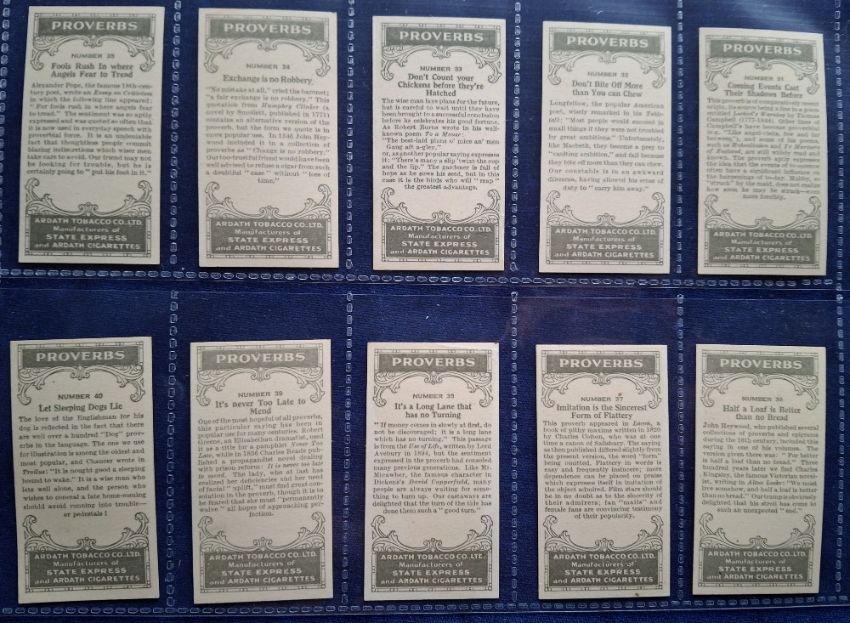 PROVERBS
NUMBER 35
Fools Rush In where
Angels Fear to Tread
Alexander Pope, the famous 18th-cen-
tury poet, wrote an Essay on Criticism
in which the following line appeared:
"For fools rush in where angels fear
to tread." The sentiment was so aptly
expressed and was quoted so often that
it is now used in everyday speech in
proverbial form. It is an undeniable
fact that thoughtless people commit
blazing indiscretions which wiser men
take care to avoid. Our friend may not
be looking for trouble, but he is
certainly going to "put his foot in it."
ARDATH TOBACCO CO. LTD.
Manufacturers of
STATE EXPRESS
and ARDATH CIGARETTES
PROVERBS
NUMBER 34
Exchange is no Robbery
"No mistake at all," cried the baronet;
"a fair exchange is no robbery." This
quotation from Humphry Clinker (a
novel by Smollett, published in 1771)
contains an alternative version of the
proverb, but the form we quote is in
more popular use. In 1546 John Hey-
wood included it in a collection of
proverbs as "Change is no robbery."
Our too-trustful friend would have been
well advised to refuse a cigar from such
a doubtful "case" without "loss of
time."
ARDATH TOBACCO CO. LTD.
Manufacturers of
STATE EXPRESS
and ARDATH CIGARETTES
PROVERBS
NUMBER 33
Don't Count your
Chickens before they're
Hatched
The wise man lays plans for the future,
but is careful to wait until they have
been brought to a successful conclusion
before he celebrates his good fortune.
As Robert Burns wrote in his well-
known poem To a Mouse:
"The best-laid plans o' mice an' men
Gang aft a-gley,"
or, as another popular saying expresses
it: "There's many a slip 'twixt the cup
and the lip." The gardener is full of
hope as he sows his seed, but in this
case it is the birds who will "reap"
the greatest advantage.
ARDATH TOBACCO CO. LTD.
Manufacturers of
STATE EXPRESS
and ARDATH CIGARETTES
PROVERBS
NUMBER 32
Don't Bite Off More
than You can Chew
Longfellow, the popular American
poet, wisely remarked in his Table-
talk: "Most people would succeed in
small things if they were not troubled
by great ambitions." Unfortunately,
like Macbeth, they become a prey to
"vaulting ambition," and fail because
they bite off more than they can chew.
Our constable is in an awkward
dilemma, having allowed his sense of
duty to "carry him away."
ARDATH TOBACCO CO. LTD.
Manufacturers of
STATE EXPRESS
and ARDATH CIGARETTES
PROVERBS
NUMBER 31
Coming Events Cast
Their Shadows Before
This proverb is of comparatively recent
origin, its source being a line in a poem
entitled Lochiel's Warning by Thomas
Campbell (1777-1844). Other lines
have become proverbial
and the poems,
such as Hohenlinden and Ye Mariners
of England, are still widely read and
known. The proverb aptly expresses
the idea that the events of to-morrow
often have a significant influence on
the happenings of to-day. Maisie,
"struck" by the maid, does not realize
how soon he may be struck—even
more forcibly.
ARDATH TOBACCO CO. LTD.
Manufacturers of
STATE EXPRESS
and ARDATH CIGARETTES
PROVERBS
NUMBER 40
Let Sleeping Dogs Lie
The love of the Englishman for his
dog is reflected in the fact that there
are well over a hundred "Dog" prov-
erbs in the language. The one we use
for illustration is among the oldest and
most popular, and Chaucer wrote in
Troilus: "It is nought good a sleeping
hound to wake." It is a wise man who
lets well alone, and the person who
wishes to conceal a late home-coming
should avoid running into trouble—
or pedestals!
ARDATH TOBACCO CO. LTD.
Manufacturers of
STATE EXPRESS
and ARDATH CIGARETTES
PROVERBS
NUMBER 39
It's never Too Late to
Mend
One of the most hopeful of all proverbs,
this particular saying has been in
popular use for many centuries. Robert
Greene, an Elizabethan dramatist, used
it as a title for a pamphlet Never Too
Late, while in 1856 Charles Reade pub-
lished a propagandist novel dealing
with prison reform: It is never too late
to mend. The lady, who at last has
realized her deficiencies and her need
of facial "uplift," must find great con-
solation in the proverb, though it is to
be feared that she must "permanently
waive" all hopes of approaching per-
fection.
ARDATH TOBACCO CO. LTD.
Manufacturers of
STATE EXPRESS
and ARDATH CIGARETTES
PROVERBS
NUMBER 38
It's a Long Lane that
has no Turning
"If money comes in slowly at first, do
not be discouraged; it is a long lane
which has no turning." This passage is
from the Use of Life, written by Lord
Avebury in 1894, but the sentiment
expressed in the proverb had consoled
many previous generations. Like Mr.
Micawber, the famous character in
Dickens's David Copperfield, many
people are always waiting for some-
thing to turn up. Our castaways are
delighted that the turn of the tide has
done them such a "good turn."
ARDATH TOBACCO CO. LTD.
Manufacturers of
STATE EXPRESS
and ARDATH CIGARETTES
PROVERBS
NUMBER 37
Imitation is the Sincerest
Form of Flattery
This proverb appeared in Lacon, a
book of pithy maxims written in 1820
by Charles Colton, who was at one
time a rector of Salisbury. The saying
as then published differed slightly from
the present version, the word "form"
being omitted. Flattery in words is
easy and frequently insincere; more
dependence can be placed on praise
which expresses itself in imitation of
the object admired. Film stars should
be in no doubt as to the sincerity of
their admirers; fan "mails" and
female fans are convincing testimony
of their popularity.
ARDATH TOBACCO CO. LTD.
Manufacturers of
STATE EXPRESS
and ARDATH CIGARETTES
PROVERBS
NUMBER 36
Half a Loaf is Better
than no Bread
John Heywood, who published several
collections of proverbs and epigrams
during the 16th century, included this
saying in one of his volumes. The
version given there was: "For better
is half a loaf than no bread." Three
hundred years later we find Charles
Kingsley, the famous Victorian novel-
ist, writing in Alton Locke: "We must
live somehow, and half a loaf is better
than no bread." Our tramp is obviously
delighted that his stroll has come to
such an unexpected "end."
ARDATH TOBACCO CO. LTD.
Manufacturers of
STATE EXPRESS
and ARDATH CIGARETTES